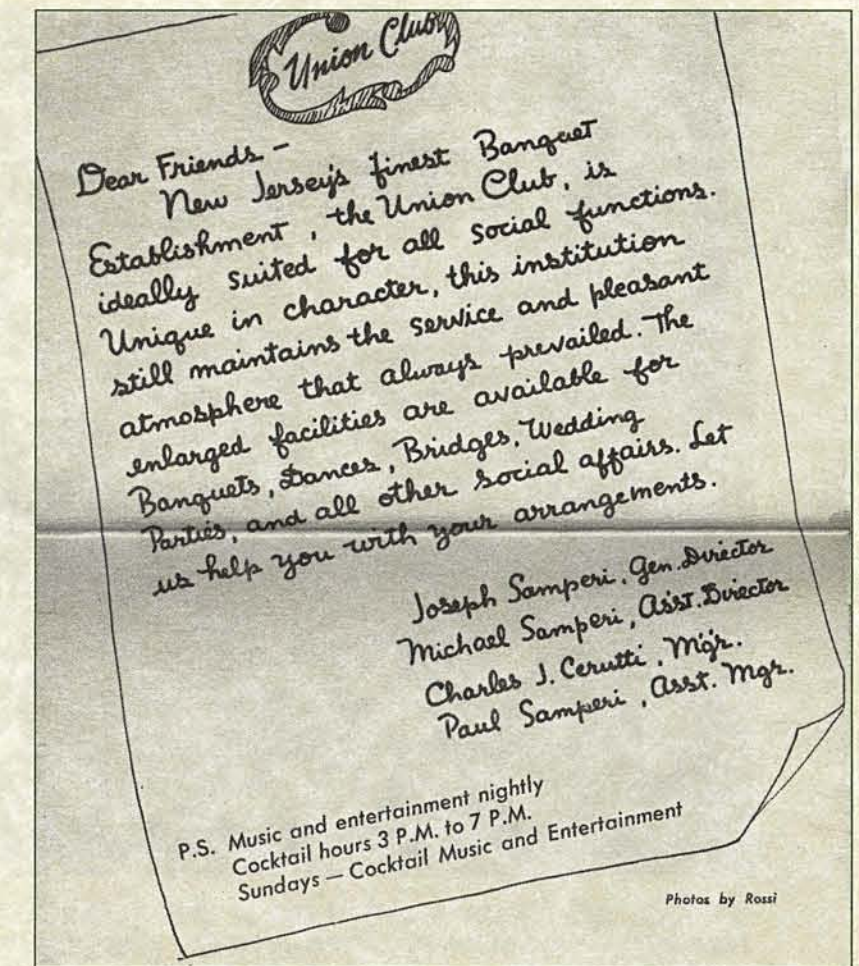 Union Club
Dear Friends -
New Jersey's finest Banquet
Establishment, the Union Club, is
ideally suited for all social functions.
Unique in character, this institution
still maintains the service and pleasant
atmosphere that always prevailed. The
enlarged facilities are available for
Banquets, Dances, Bridges, Wedding
Parties, and all other social affairs. Let
us help you with your arrangements.
Joseph Samperi, Gen. Director
Michael Samperi, Ass't. Director
Charles J. Cerutti, M'g'r.
Paul Samperi, Asst. Mgr.
P.S. Music and entertainment nightly
Cocktail hours 3 P.M. to 7 P.M.
Sundays — Cocktail Music and Entertainment
Photos by Rossi